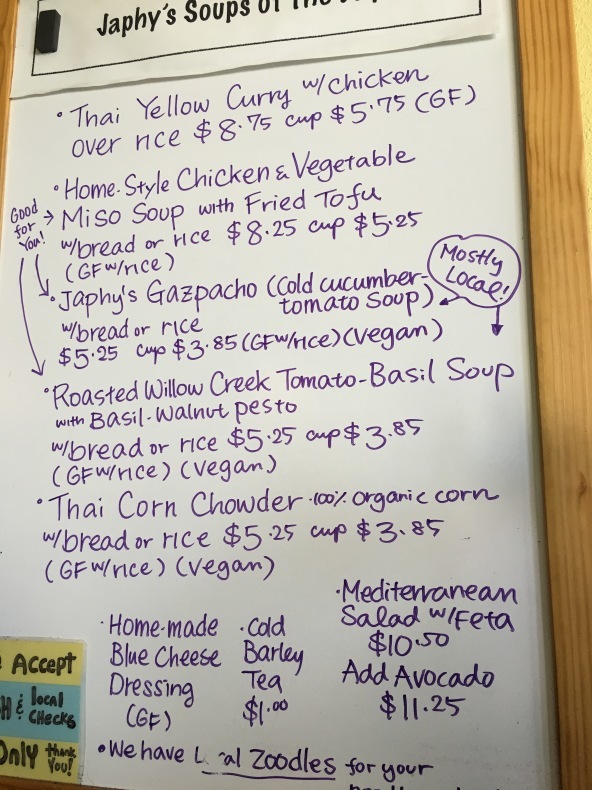 Japhy's Soups of
• Thai Yellow Curry w/chicken
over rice $8.75 cup $5.75 (GF)
• Home-Style Chicken & Vegetable
Good for You! → Miso Soup with Fried Tofu
w/bread or rice $8.25 cup $5.25
(GF w/rice)
Mostly Local!
• Japhy's Gazpacho (Cold cucumber-
tomato soup)
w/bread or rice
$5.25 cup $3.85 (GF w/rice) (vegan)
• Roasted Willow Creek Tomato-Basil Soup
with Basil-Walnut pesto
w/bread or rice $5.25 cup $3.85
(GF w/rice) (vegan)
• Thai Corn Chowder • 100% organic corn
w/bread or rice $5.25 cup $3.85
(GF w/rice) (vegan)
• Home-made
Blue Cheese
Dressing
(GF)
• Cold
Barley
Tea
$1.00
• Mediterranean
Salad w/Feta
$10.50
Add Avocado
$11.25
Accept
& local
CHecks
Only thank
You!
• We have Zoodles for your